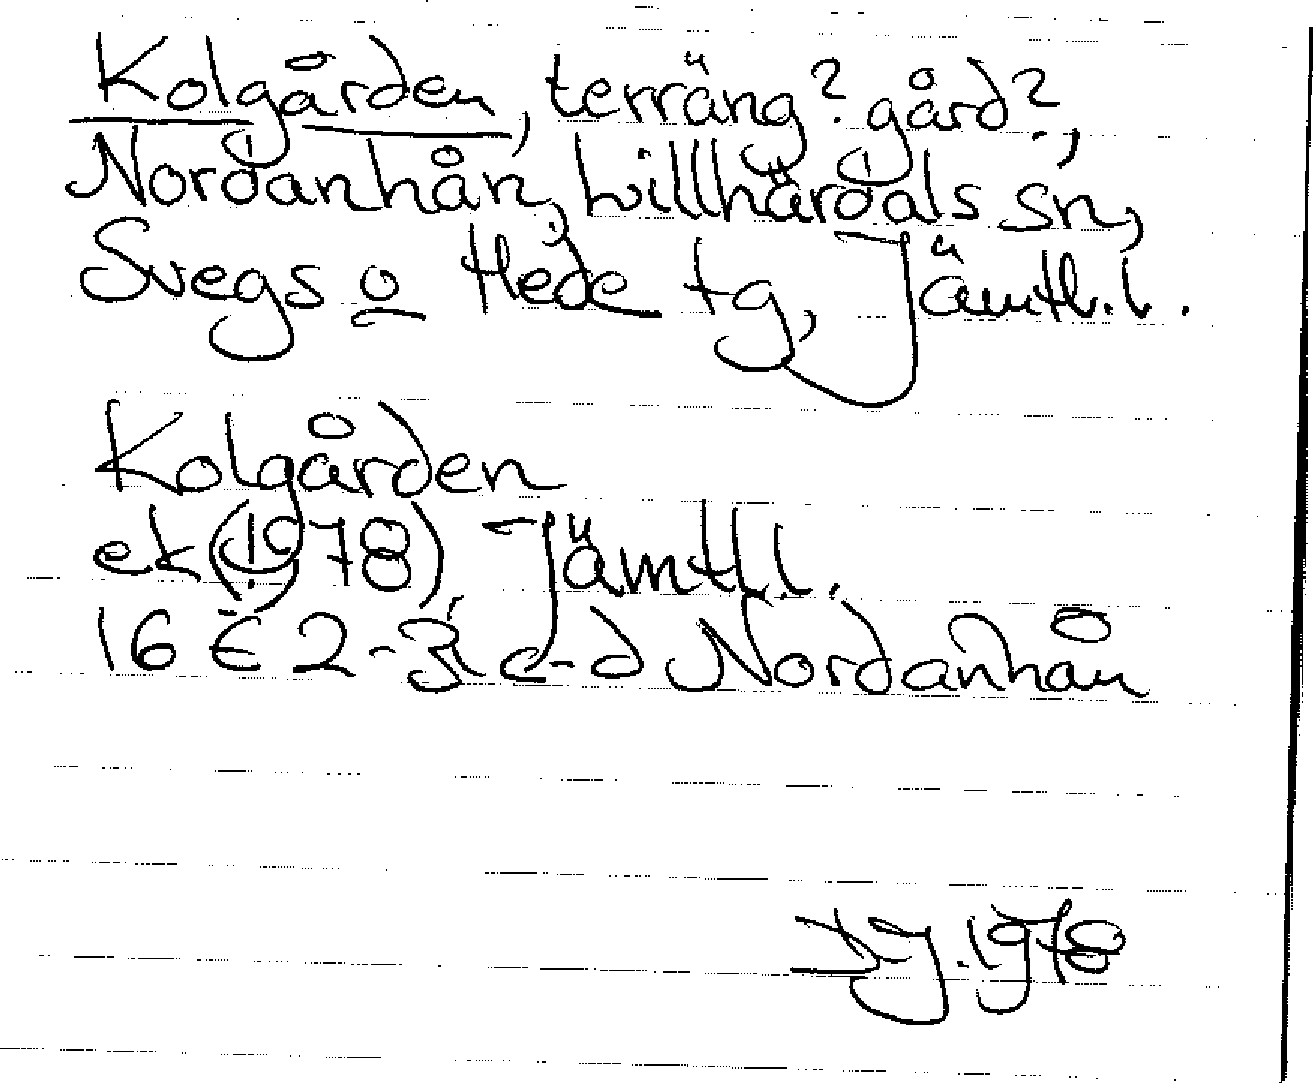 Kolgården, terräng? gård?,
Nordanhån, Lillhärdals sn,
Svegs o Hede tg, Jämtl. l.
Kolgården
ek (1978) Jämtl. l.
16 E 2-3 c-d Nordanhån
1978